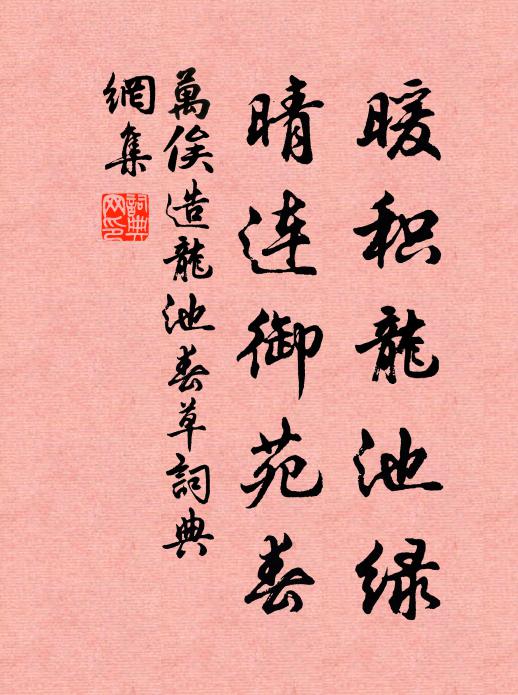 暖积龍池绿
晴连御苑春
萬俟造龍池春草詞典
網集
詞典網印